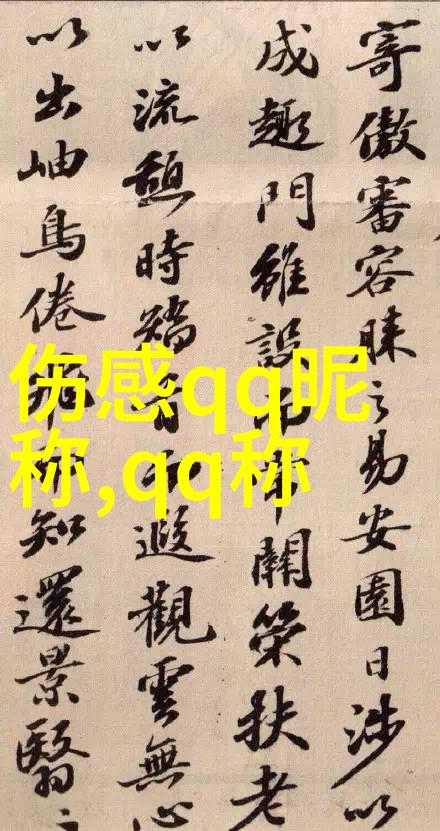 寄傲審容膝之易安園日涉以
成趣門雖設而常關策扶老
以流憩時矯首而遐觀雲無心
以出岫鳥倦飛而知還景翳
伤感qq昵
称,qq称